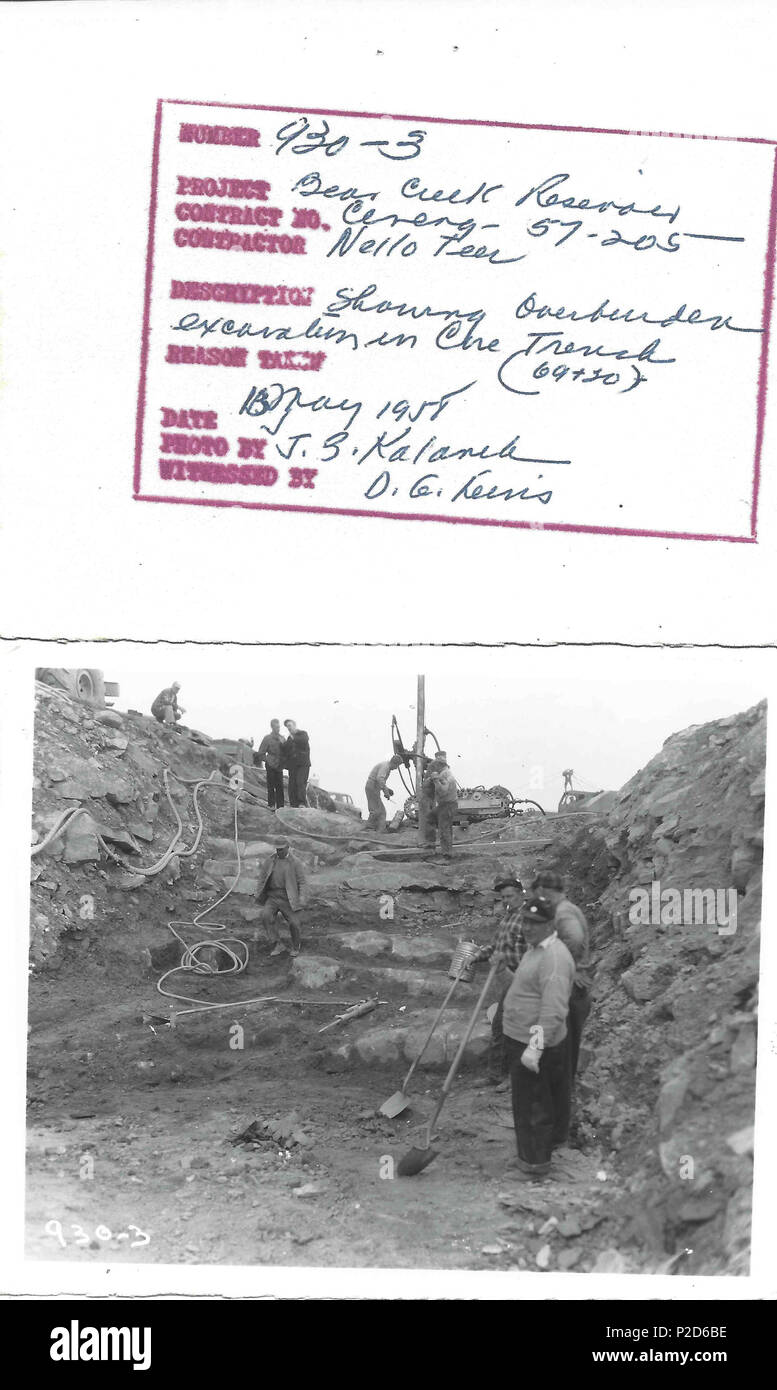 NUMBER 930-3
PROJECT Bear Creek Reservoir
CONTRACT NO. Civeng- 57-205
CONTRACTOR Nello Teer
DESCRIPTION Showing Overburden
excavation in Core Trench
REASON TAKEN (69+20)
DATE 13 May 195
PHOTO BY J. S. Kalanek
WITNESSED BY D. G. Lewis
930-3
alamy
a
a
a
alamy
Image ID: P2D6BE
www.alamy.com